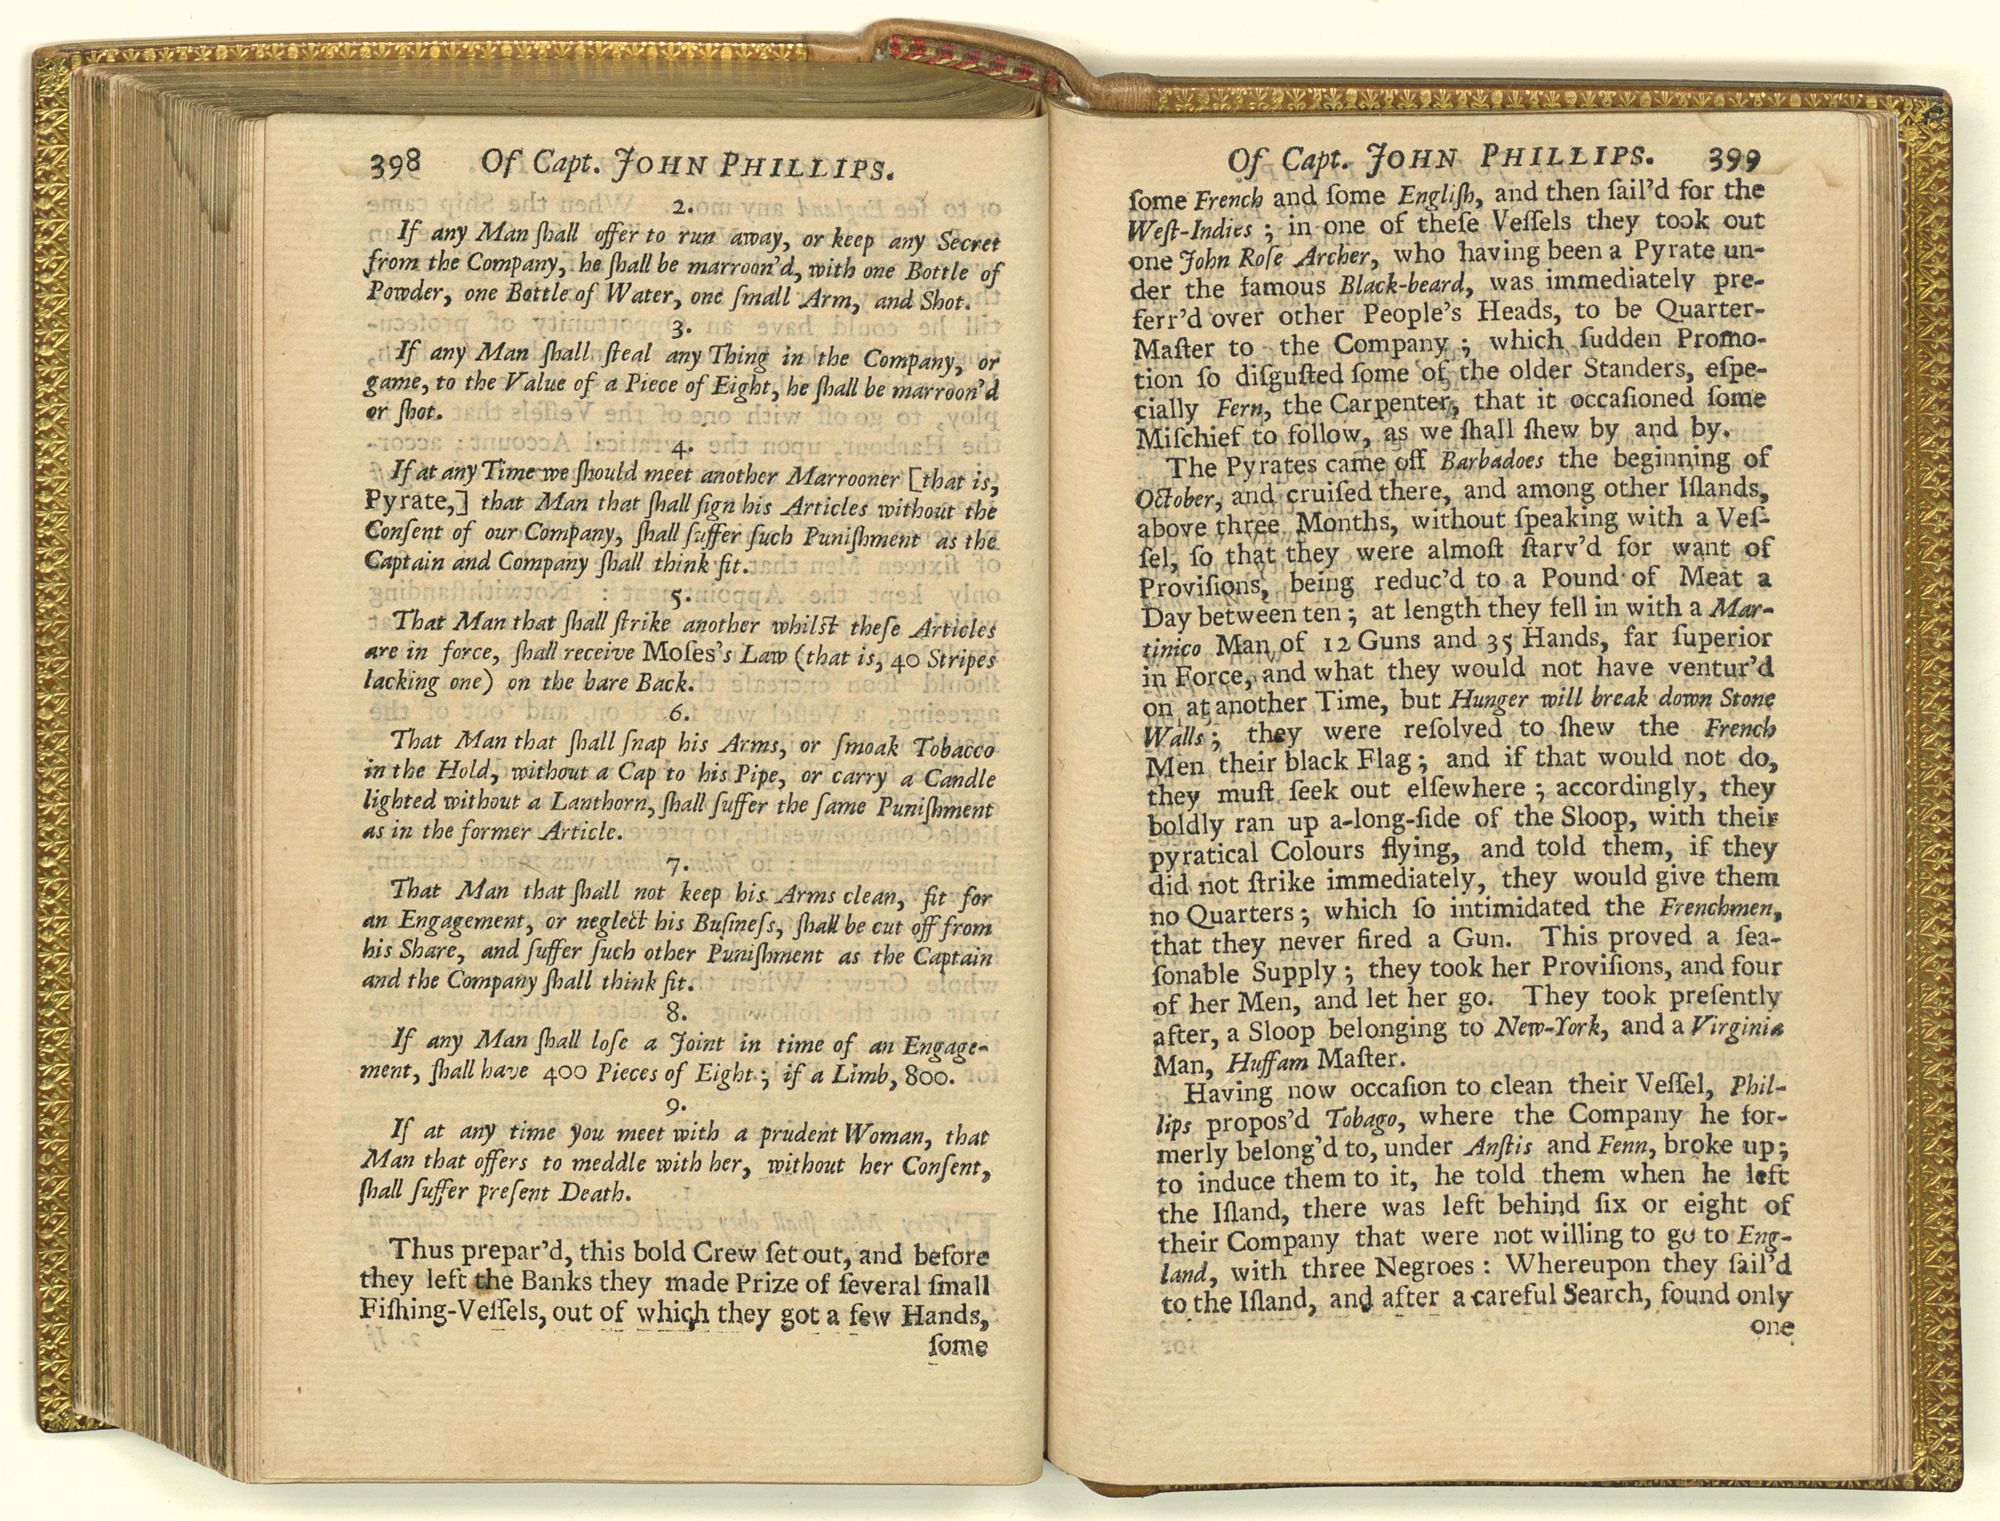 398 Of Capt. JOHN PHILLIPS.
2.
If any Man ſhall offer to run away, or keep any Secret
from the Company, he ſhall be marroon'd, with one Bottle of
Powder, one Bottle of Water, one ſmall Arm, and Shot.
3.
If any Man ſhall ſteal any Thing in the Company, or
game, to the Value of a Piece of Eight, he ſhall be marroon'd
or ſhot.
4.
If at any Time we ſhould meet another Marrooner [that is,
Pyrate,] that Man that ſhall ſign his Articles without the
Conſent of our Company, ſhall ſuffer ſuch Puniſhment as the
Captain and Company ſhall think fit.
5.
That Man that ſhall ſtrike another whilſt theſe Articles
are in force, ſhall receive Moſes's Law (that is, 40 Stripes
lacking one) on the bare Back.
6.
That Man that ſhall ſnap his Arms, or ſmoak Tobacco
in the Hold, without a Cap to his Pipe, or carry a Candle
lighted without a Lanthorn, ſhall ſuffer the ſame Puniſhment
as in the former Article.
7.
That Man that ſhall not keep his Arms clean, fit for
an Engagement, or neglect his Buſineſs, ſhall be cut off from
his Share, and ſuffer ſuch other Puniſhment as the Captain
and the Company ſhall think fit.
8.
If any Man ſhall loſe a Joint in time of an Engage-
ment, ſhall have 400 Pieces of Eight; if a Limb, 800.
9.
If at any time you meet with a prudent Woman, that
Man that offers to meddle with her, without her Conſent,
ſhall ſuffer preſent Death.
Thus prepar'd, this bold Crew ſet out, and before
they left the Banks they made Prize of ſeveral ſmall
Fiſhing-Veſſels, out of which they got a few Hands,
ſome
Of Capt. JOHN PHILLIPS. 399
ſome French and ſome Engliſh, and then ſail'd for the
Weſt-Indies; in one of theſe Veſſels they took out
one John Roſe Archer, who having been a Pyrate un-
der the famous Black-beard, was immediately pre-
ferr'd over other People's Heads, to be Quarter-
Maſter to the Company; which ſudden Promo-
tion ſo diſguſted ſome of the older Standers, eſpe-
cially Fern, the Carpenter, that it occaſioned ſome
Miſchief to follow, as we ſhall ſhew by and by.
The Pyrates came off Barbadoes the beginning of
October, and cruiſed there, and among other Iſlands,
above three Months, without ſpeaking with a Veſ-
ſel, ſo that they were almoſt ſtarv'd for want of
Proviſions, being reduc'd to a Pound of Meat a
Day between ten; at length they fell in with a Mar-
tinico Man of 12 Guns and 35 Hands, far ſuperior
in Force, and what they would not have ventur'd
on at another Time, but Hunger will break down Stone
Walls; they were reſolved to ſhew the French
Men their black Flag; and if that would not do,
they muſt ſeek out elſewhere; accordingly, they
boldly ran up a-long-ſide of the Sloop, with their
pyratical Colours flying, and told them, if they
did not ſtrike immediately, they would give them
no Quarters; which ſo intimidated the Frenchmen,
that they never fired a Gun. This proved a ſea-
ſonable Supply; they took her Proviſions, and four
of her Men, and let her go. They took preſently
after, a Sloop belonging to New-York, and a Virginia
Man, Huffam Maſter.
Having now occaſion to clean their Veſſel, Phil-
lips propos'd Tobago, where the Company he for-
merly belong'd to, under Anſtis and Fenn, broke up;
to induce them to it, he told them when he left
the Iſland, there was left behind ſix or eight of
their Company that were not willing to go to Eng-
land, with three Negroes: Whereupon they ſail'd
to the Iſland, and after a careful Search, found only
one